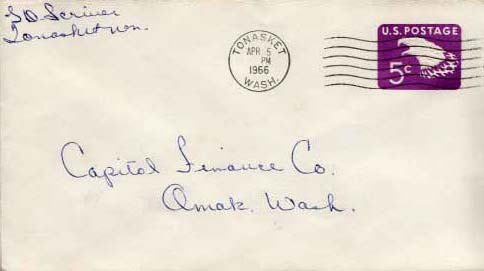 S.D. Scriver
Tonasket Wn.
TONASKET
APR 5
PM
1966
WASH.
U.S. POSTAGE
5c
Capitol Finance Co.
Omak, Wash.